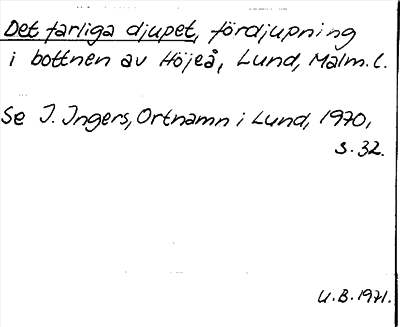 Det farliga djupet, fördjupning
i bottnen av Höjeå, Lund, Malm. l.
Se J. Ingers, Ortnamn i Lund, 1970,
s. 32.
U.B. 1971.